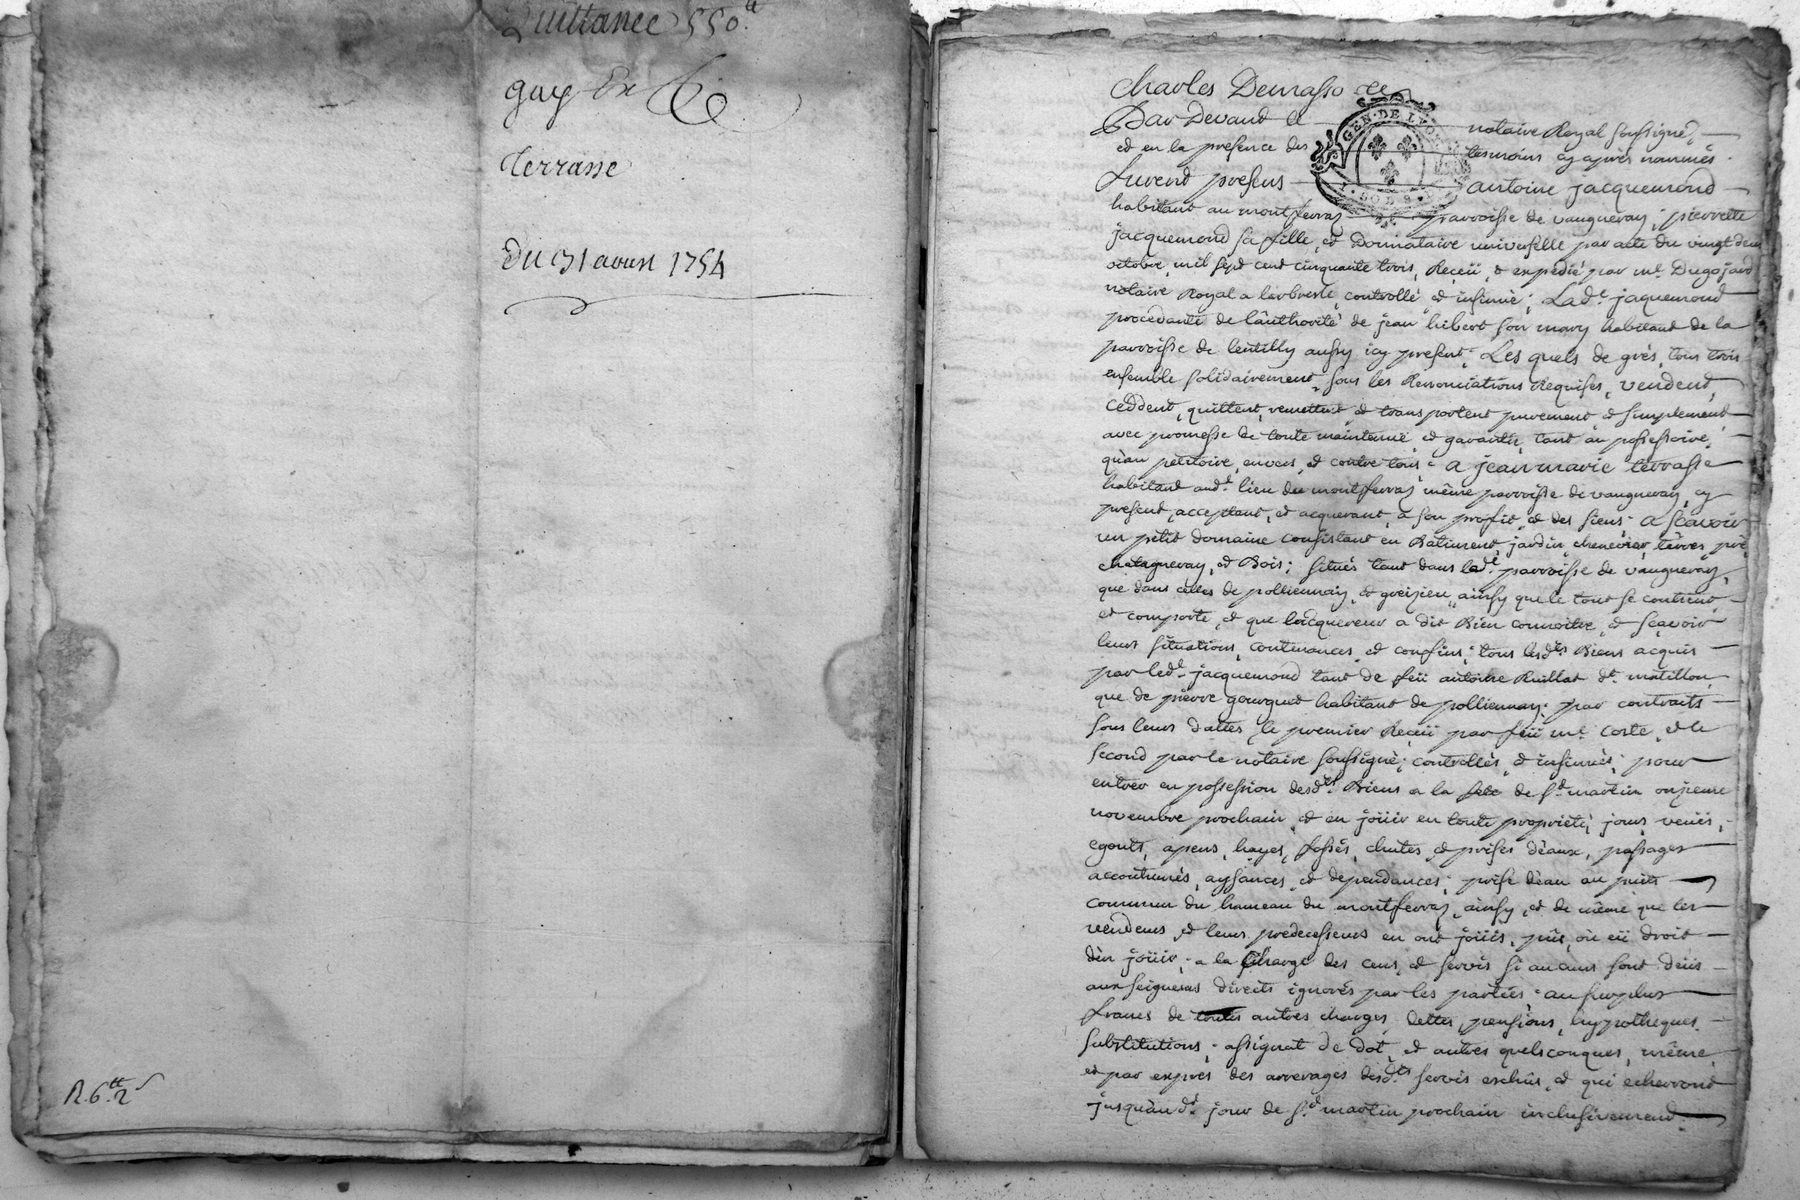 Quittance 550.tt
guy
Terrasse
Du 31 aoust 1754
R. 6tt 2s
Charles Demasso
Par Devand le notaire Royal soussigné,
et en la presence des temoins cy après nommés.
furend presens antoine jacquemond
habitant au montferray parroisse de vaugneray; pierrette
jacquemond sa fille, et donnataire universelle par acte du vingt deux
octobre, mil sept cent cinquante trois, Reçeü, et expedié par me. Dugojard
notaire Royal a larbresle, controllé et insinué; Lade. jaquemond
procedante de l'authorité de jean hibert son mary habitand de la
parroisse de lentilly aussy icy present. Les quels de grés, tous trois
ensemble solidairement, sous les Renonciations Requises, vendend,
ceddent, quittent, remettent, et transportent purement, et simplement
avec promesse de toute maintenüe, et garantir, tant au possessoire,
qu'au petitoire, envers, et contre tous: a jean marie terrasse
habitand audt. lieu du montferray même parroisse de vaugneray, cy
present, acceptant, et acquerant, a son profit, et des siens: a sçavoir
un petit domaine consistant en Batiment, jardin, chenevier, terres, pré
chatagneray, et Bois; situés tant dans ladte. parroisse de vaugneray,
que dans celles de polliennay, et greizieu, ainsy que le tout se contient,
et comporte, et que l'acquereur a dit Bien connoitre, et sçavoir
leurs situations, contenances, et confins; tous lesdts. Biens acquis
par ledt. jacquemond tant de feü antoine Rullat dt. matillon,
que de pierre gourguet habitant de polliennay. par contraits
sous leurs dattes, le premier Reçeü par feü me. Coste, et le
second par le notaire soussigné; controllés, et insinués; pour
entrer en possession desdts. Biens a la fete de St. martin onzieme
novembre prochain, et en joüir en toute proprieté, jours, veües,
egouts, apens, hayes, fossés, chutes, et prises d'eaux, passages
accoutumés, aysances, et dependances; prise d'eau au puits
commun du hameau du montferray, ainsy, et de même que les
vendeurs, et leurs predecesseurs en ont joüis, pûs, où eü droit
d'en joüir; a la Charge des cens, et servis si aucuns sont deüs
aux seigneurs directs ignorés par les parties; au surplus
francs de toutes autres charges, dettes, pensions, hypotheques,
substitutions, assignat de dot, et autres quelsconques, même,
et par exprés des arrerages desdts. servis eschûs, et qui echerrond
jusqu'audt. jour de St. martin prochain inclusivement